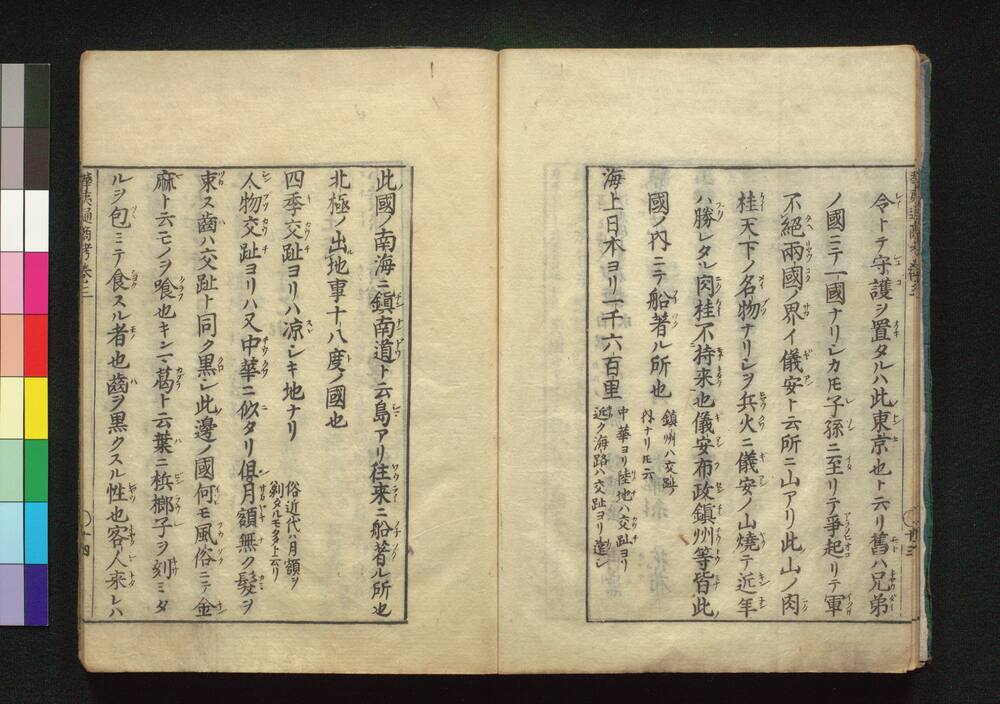 令トテ守護ヲ置タルハ此東京也ト云リ舊ハ兄弟
ノ國ニテ一國ナリシカ𪜈子孫ニ至リテ爭起リテ軍
不絕兩國ノ界イ儀安ト云所ニ山アリ此山ノ肉
桂天下ノ名物ナリシヲ兵火ニ儀安ノ山燒テ近年
ハ勝レタル肉桂不持来也儀安布政鎮州等皆此
國ノ内ニテ船著ル所也
鎮州ハ交趾ノ
内ナリ𪜈云
海上日本ヨリ一千六百里
中華ヨリ陸地ハ交趾ヨリ
近ク海路ハ交趾ヨリ遠シ
此國ノ南海ニ鎮南道ト云島アリ往来ニ船著ル所也
北極ノ出地事十八度ノ國也
四季交趾ヨリハ凉シキ地ナリ
人物交趾ヨリハ又中華ニ似タリ但月額無ク髮ヲ
俗近代ハ月額ヲ
剃タルモ多ト云リ
束ス齒ハ交趾ト同ク黒シ此邊ノ國何モ風俗ニテ金
麻ト云モノヲ喰也キンマ葛ト云葉ニ梹榔子ヲ刻ミタ
ルヲ包ミテ食スル者也齒ヲ黒クスル性也客人来レハ
華夷通商考卷之三
十四